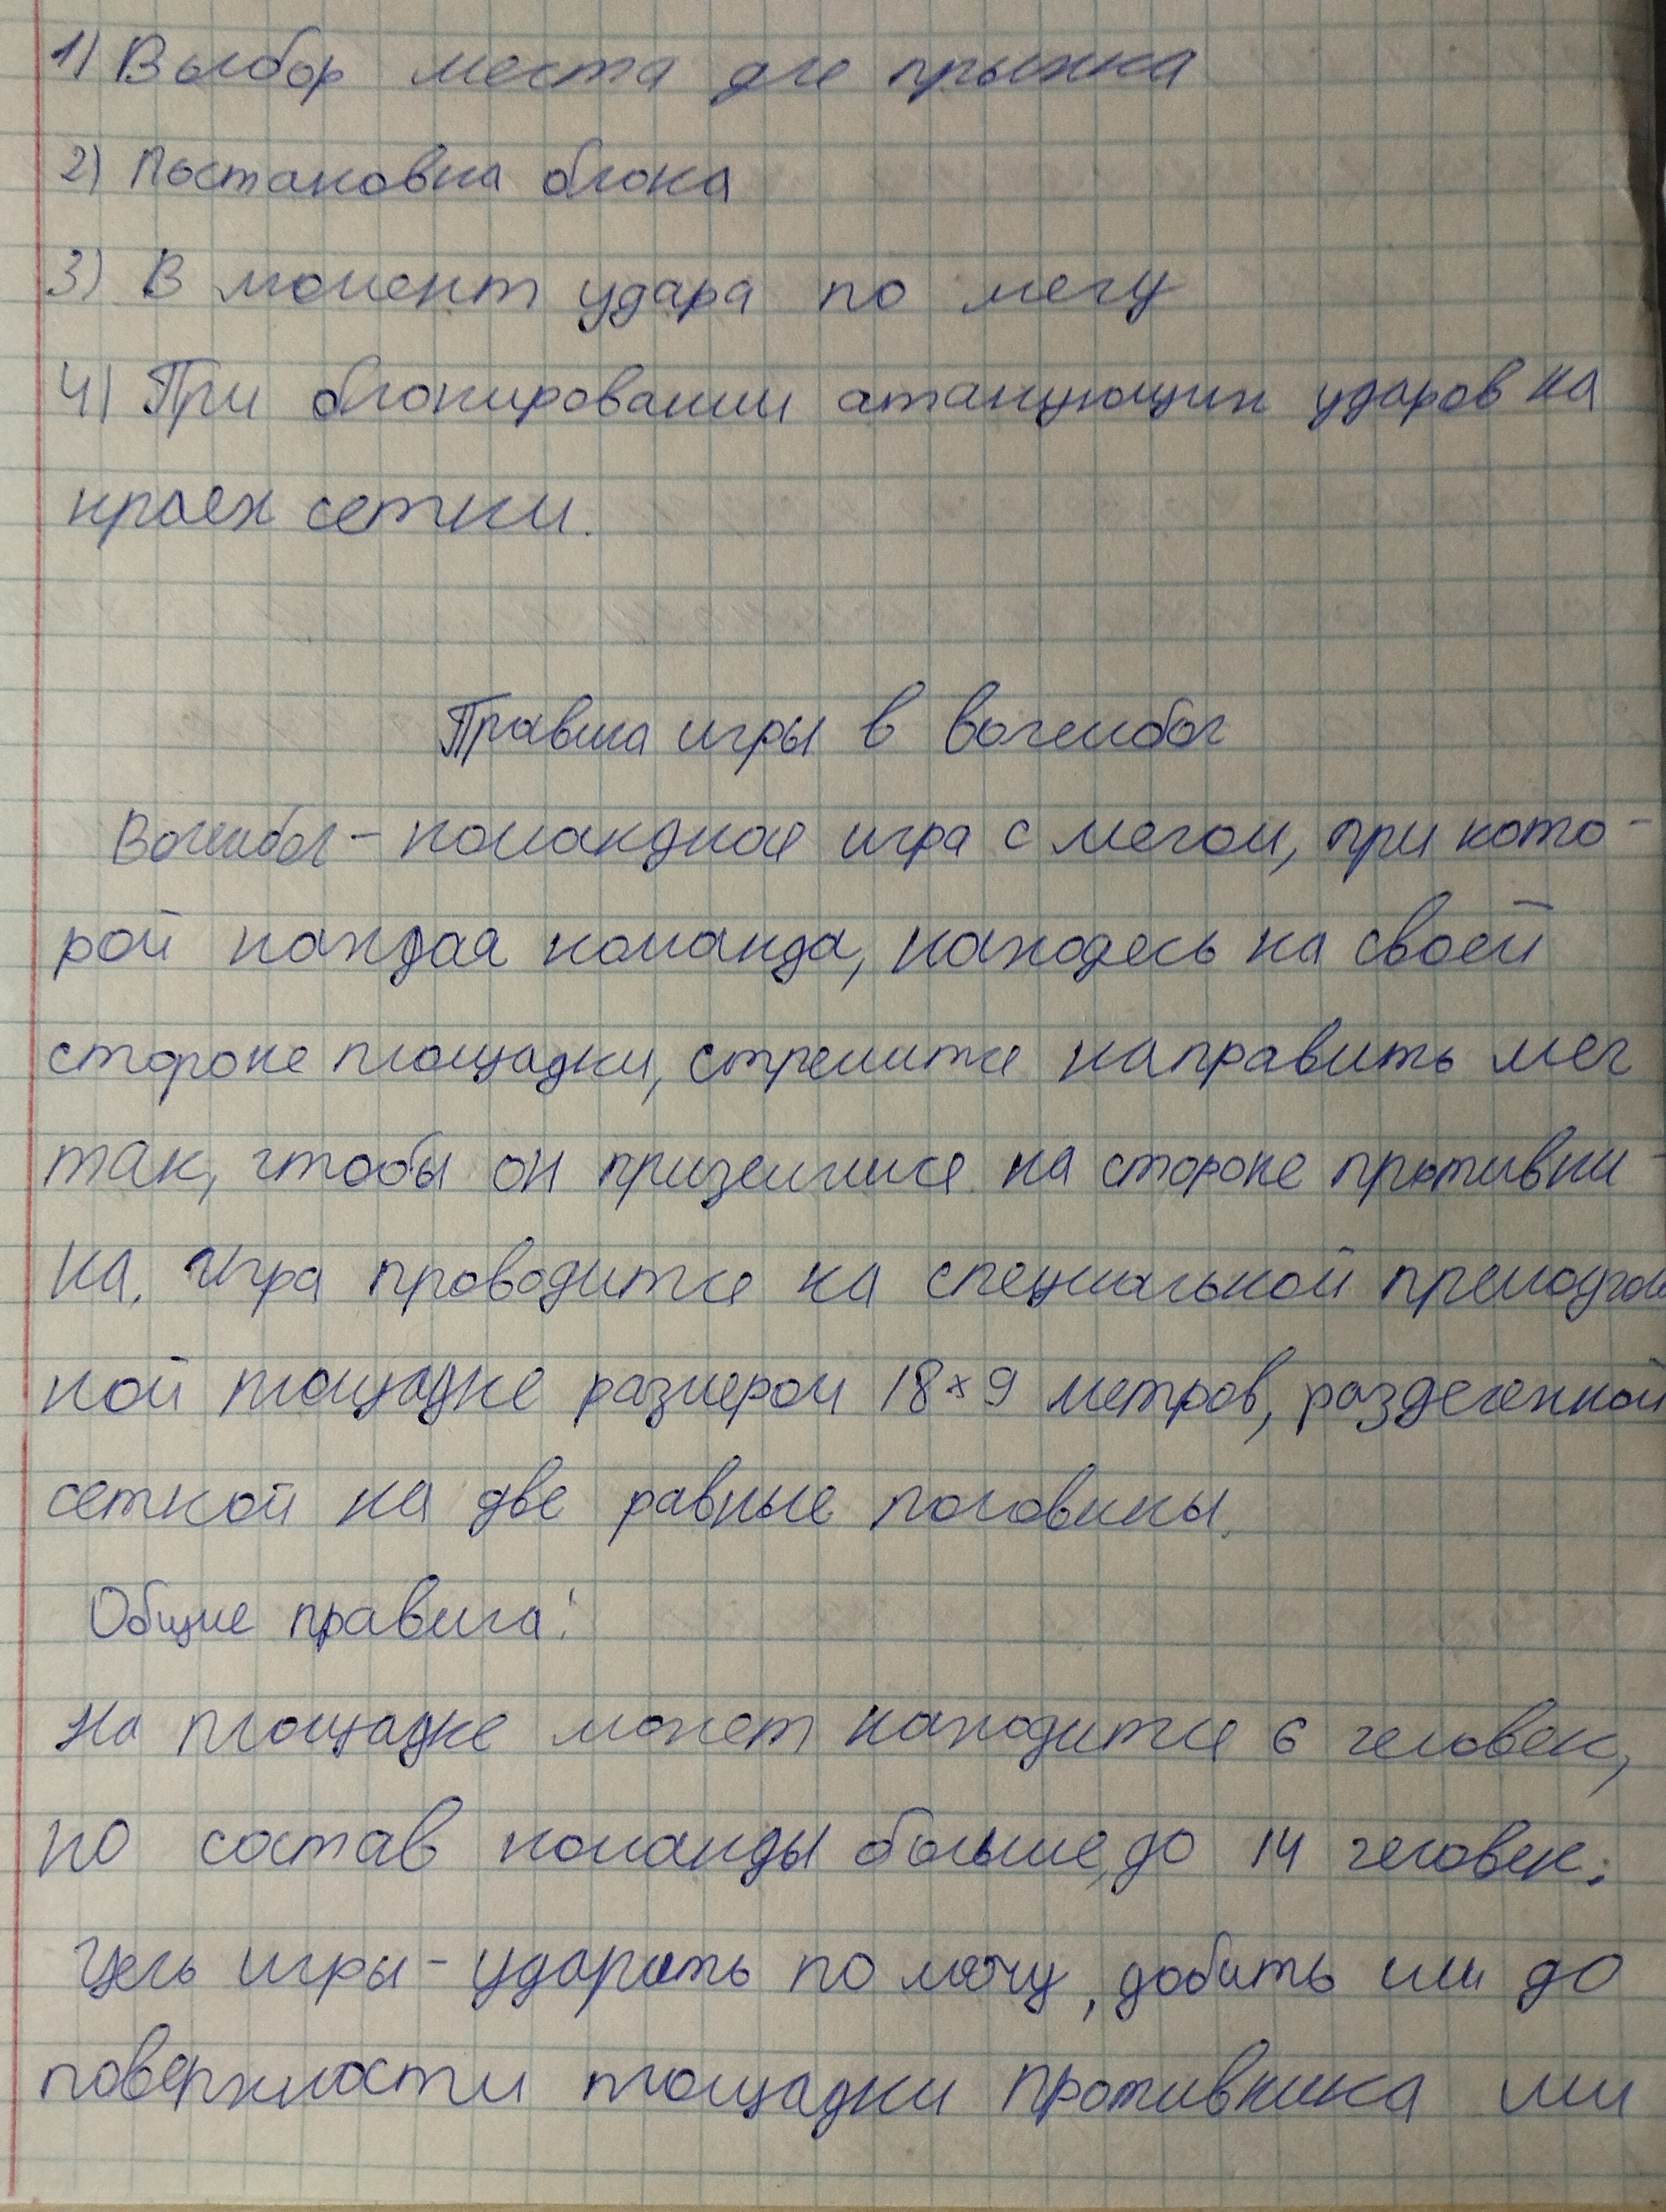 1) Выбор места для прыжка
2) Постановка блока
3) В момент удара по мячу
4) При блокировании атакующих ударов на
краях сетки.
Правила игры в волейбол
Волейбол - командная игра с мячом, при кото-
рой каждая команда, находясь на своей
стороне площадки, стремится направить мяч
так, чтобы он приземлился на стороне противни-
ка. Игра проводится на специальной прямоуголь
ной площадке размером 18 × 9 метров, разделенной
сеткой на две равные половины.
Общие правила:
На площадке может находится 6 человек,
но состав команды больше, до 14 человек.
Цель игры - ударить по мячу, добить им до
поверхности площадки противника или